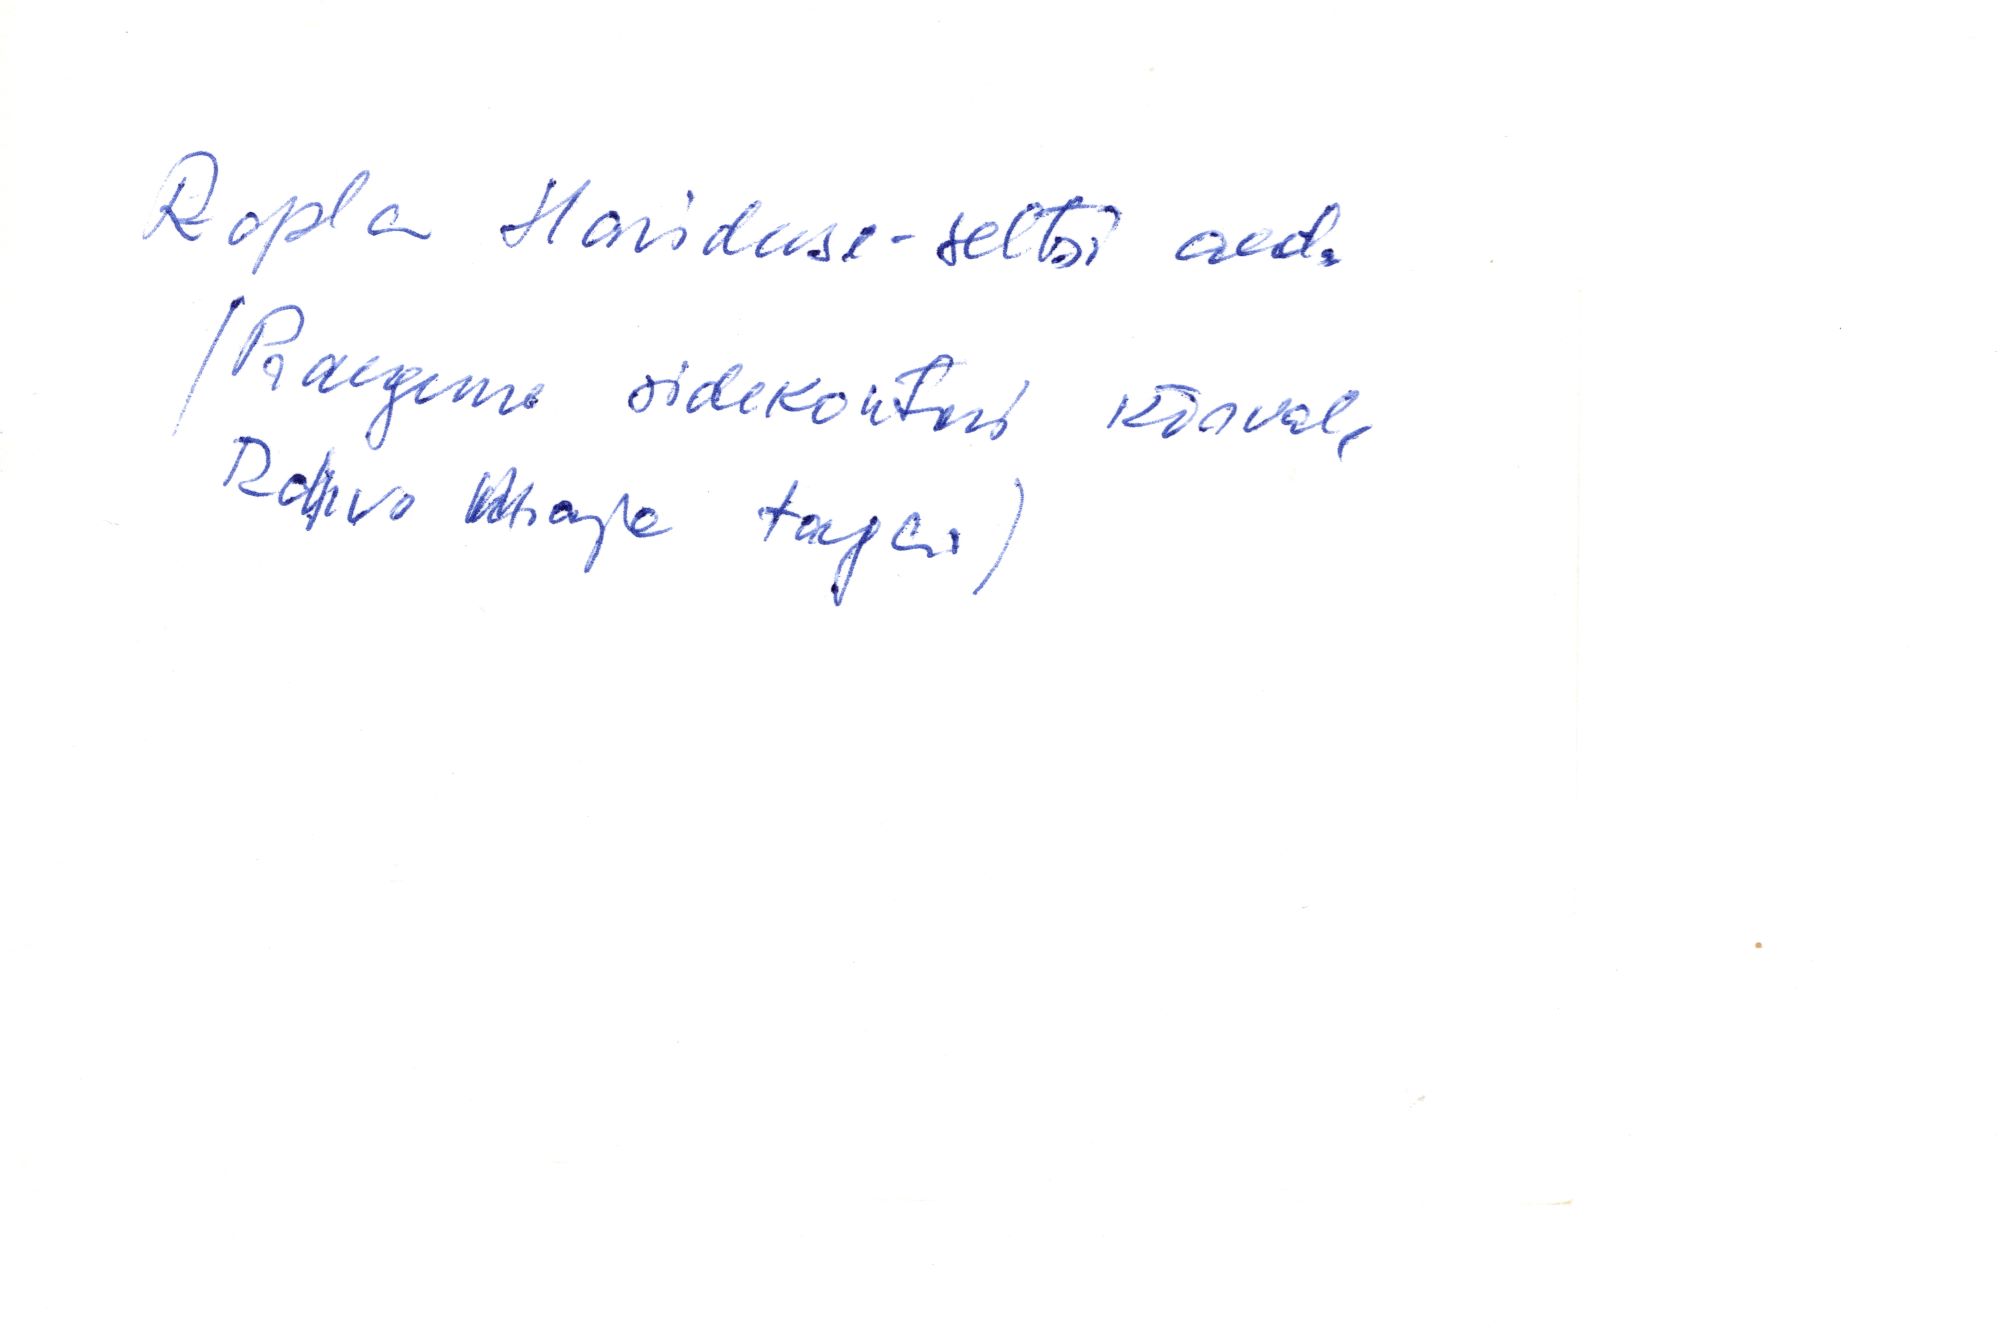 Rapla Hariduse-seltsi aed.
(Praeguse sidekontori kõrval,
Rahva maja taga)